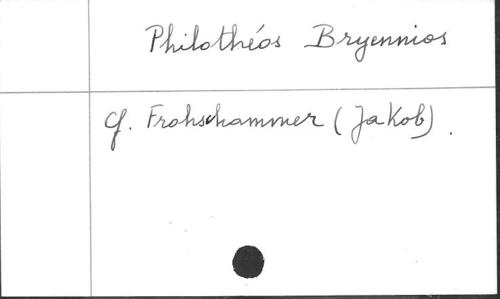 Philothéos Bryennios
cf. Frohschammer (Jakob).